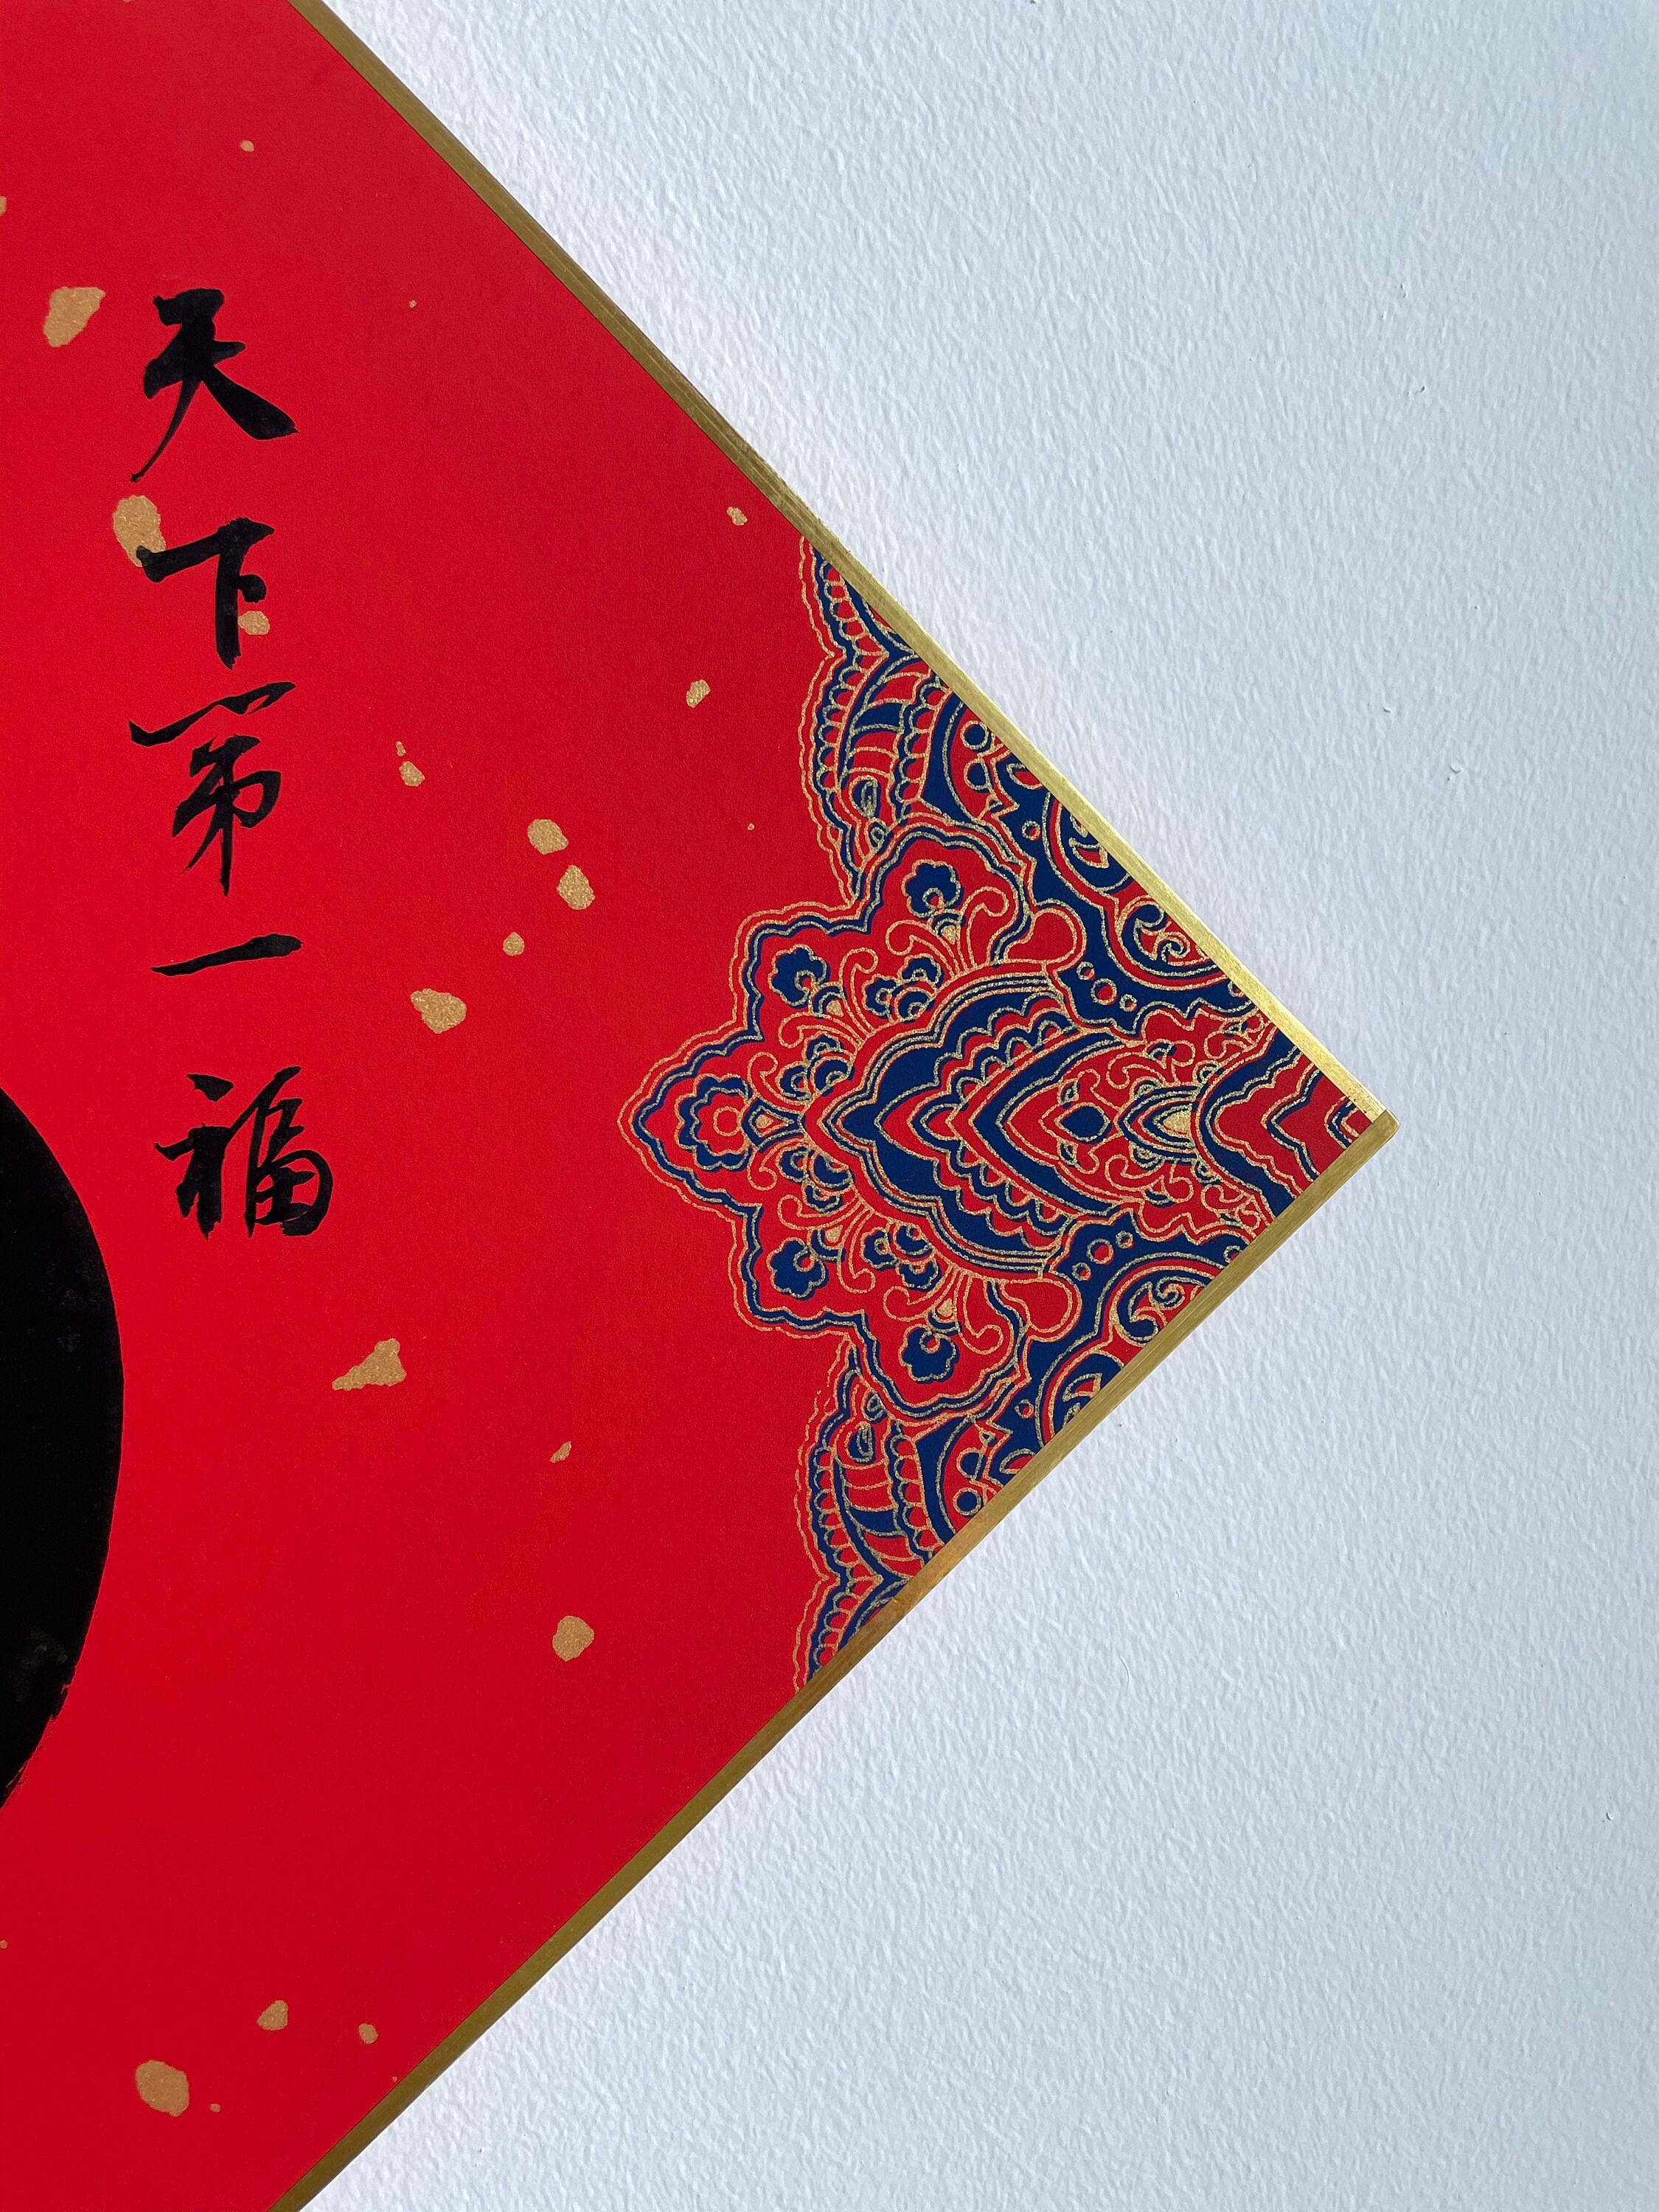 天下第一福